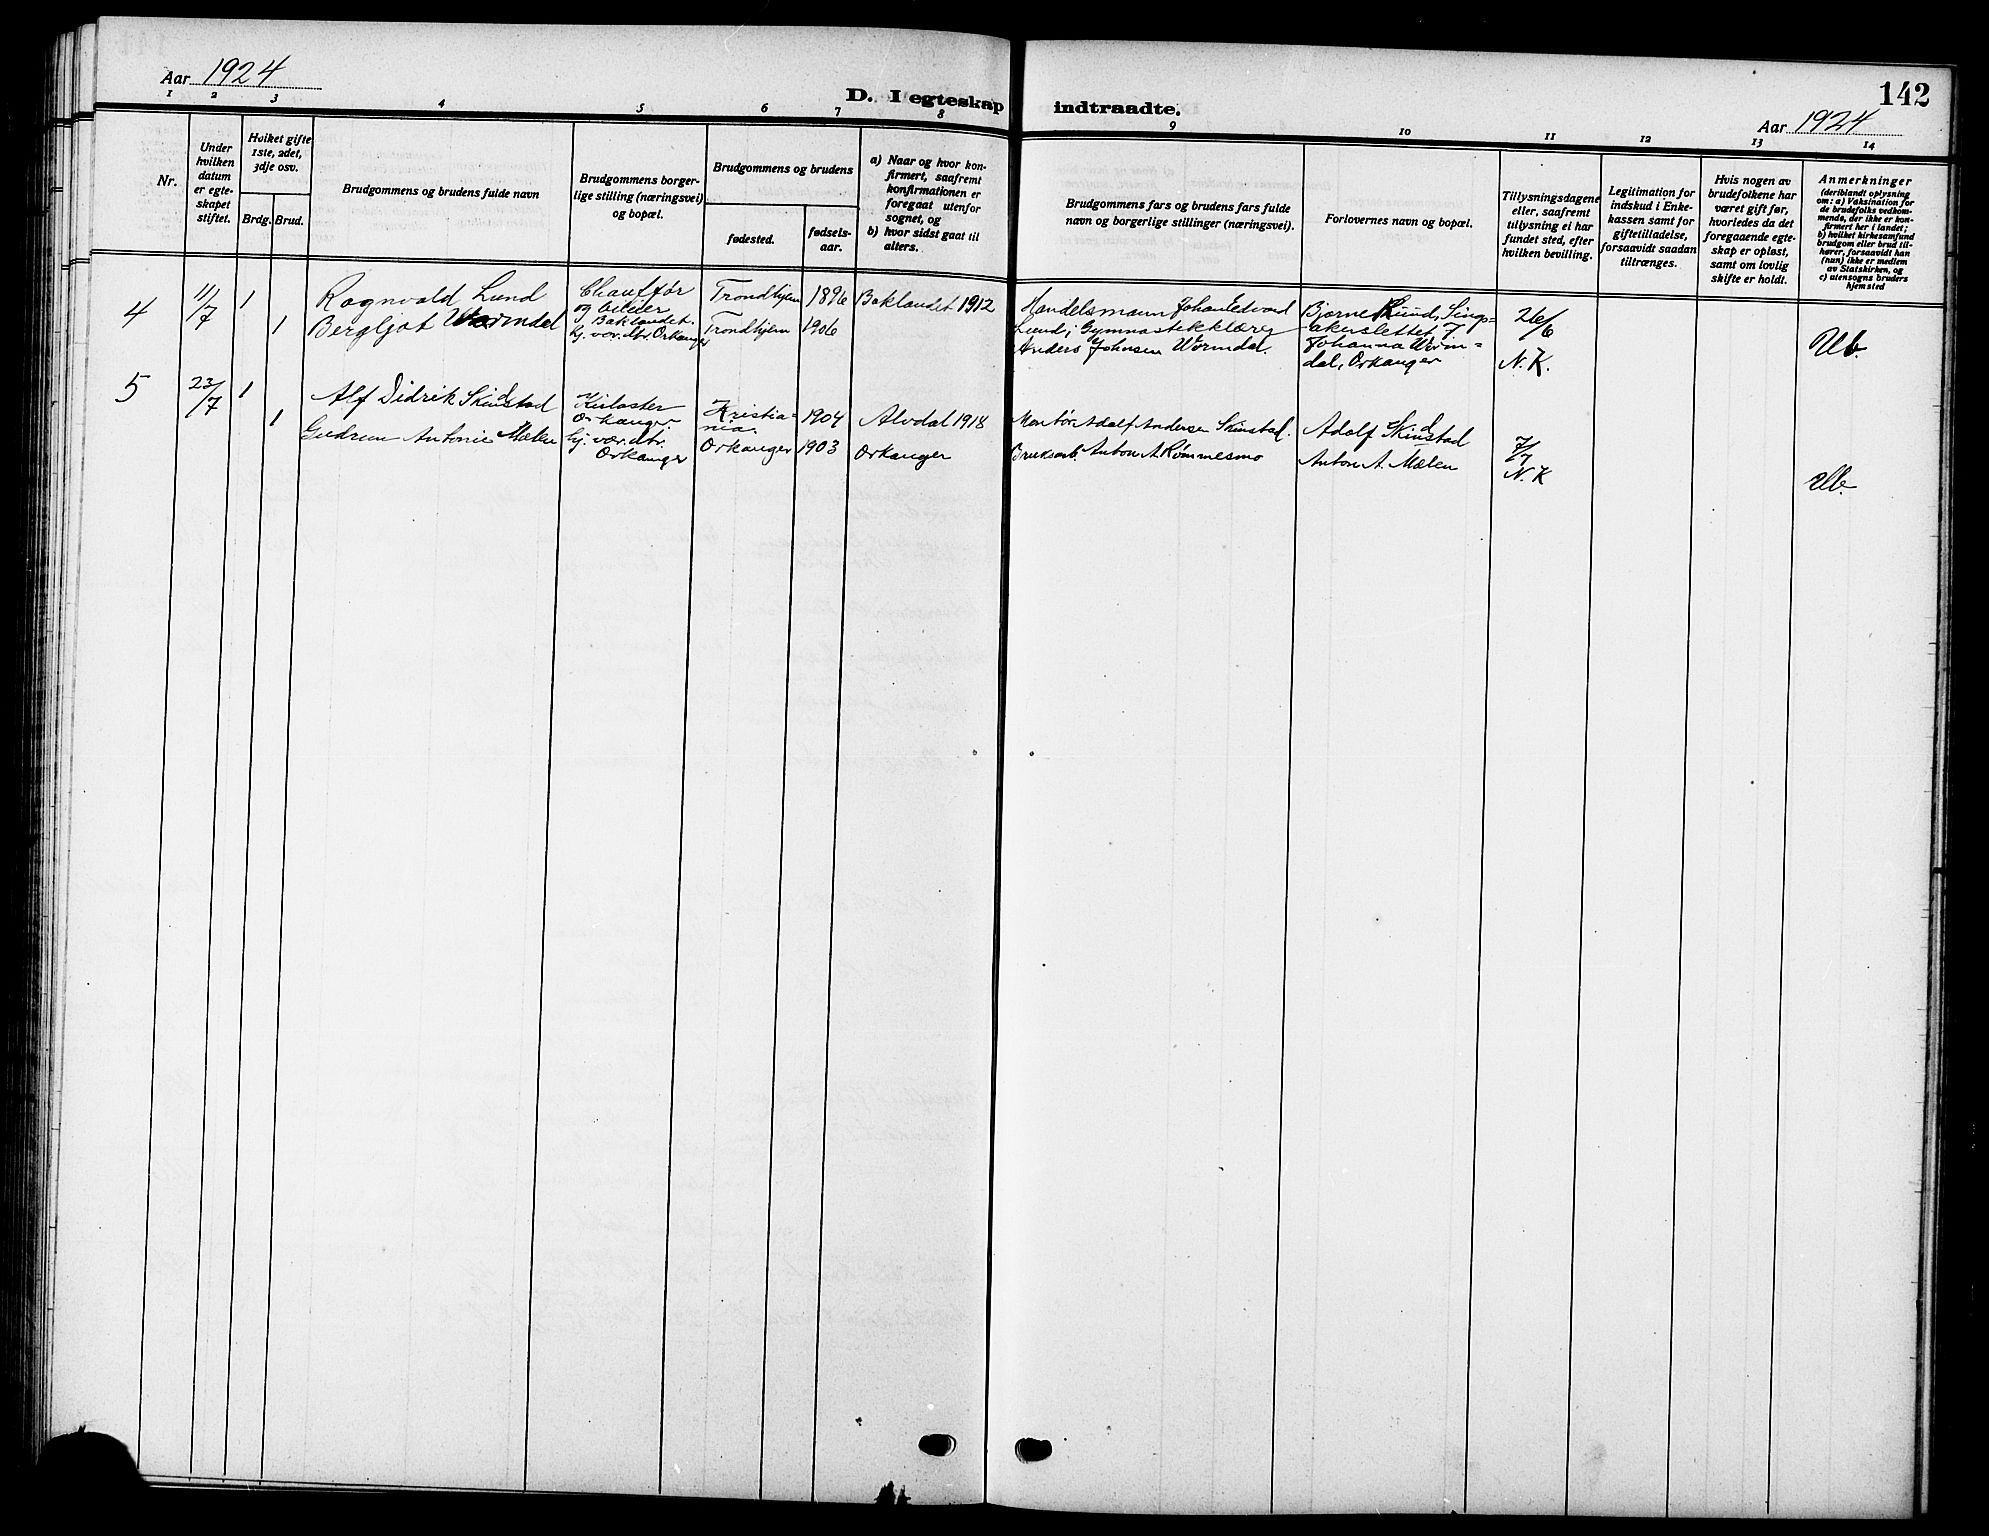 Aar 1924
D. I egteskap indtraadte.
142
Aar 1924
1 2 3 4 5 6 7 8 9 10 11 12 13 14
Nr.
Under
hvilken
datum
er egte-
skapet
stiftet.
Hvilket gifte
1ste, 2det,
3dje osv.
Brdg. Brud.
Brudgommens og brudens fulde navn
Brudgommens borger-
lige stilling (næringsvei)
og bopæl.
Brudgommens og brudens
fødested.
fødsels-
aar.
a) Naar og hvor kon-
firmert, saafremt
konfirmationen er
foregaat utenfor
sognet, og
b) hvor sidst gaat til
alters.
Brudgommens fars og brudens fars fulde
navn og borgerlige stillinger (næringsvei).
Forlovernes navn og bopæl.
Tillysningsdagene
eller, saafremt
tillysning ei har
fundet sted, efter
hvilken bevilling.
Legitimation for
indskud i Enke-
kassen samt for
giftetilladelse,
forsaavidt saadan
tiltrænges.
Hvis nogen av
brudefolkene har
været gift før,
hvorledes da det
foregaaende egte-
skap er opløst,
samt om lovlig
skifte er holdt.
Anmerkninger
(deriblandt oplysning
om: a) Vaksination for
de brudefolks vedkom-
mende, der ikke er kon-
firmert her i landet;
b) hvilket kirkesamfund
brudgom eller brud til-
hører, forsaavidt han
(hun) ikke er medlem
av Statskirken, og
c) utensogns bruders
hjemsted
4
11/7
1
1
Ragnvald Lund
Bergljot Wormdal
Chauffør
og bileier
Baklandet.
hj. vær. dtr. Orkanger
Trondhjem 1896
Trondhjem 1906
Baklandet 1912
Handelsmann Johan Edvard
Lund; Gymnastikklærer
Anders Johnsen Wormdal.
Bjarne Lund, Sings=
akerslettet 7
Johanna Worm=
dal, Orkanger
26/6
N. K.
5
23/7
1
1
Alf Didrik Skindstad
Gudrun Antonie Mælen
Orkanger
hj. vær. dtr.
Orkanger
Kristia=
nia.
1904
Orkanger 1903
Alvdal 1918
Orkanger
Montør Adolf Andersen Skinstad.
Bruksarb. Anton A. Rømmesmo
Adolf Skindstad
Anton A. Mælen
7/7
N. K